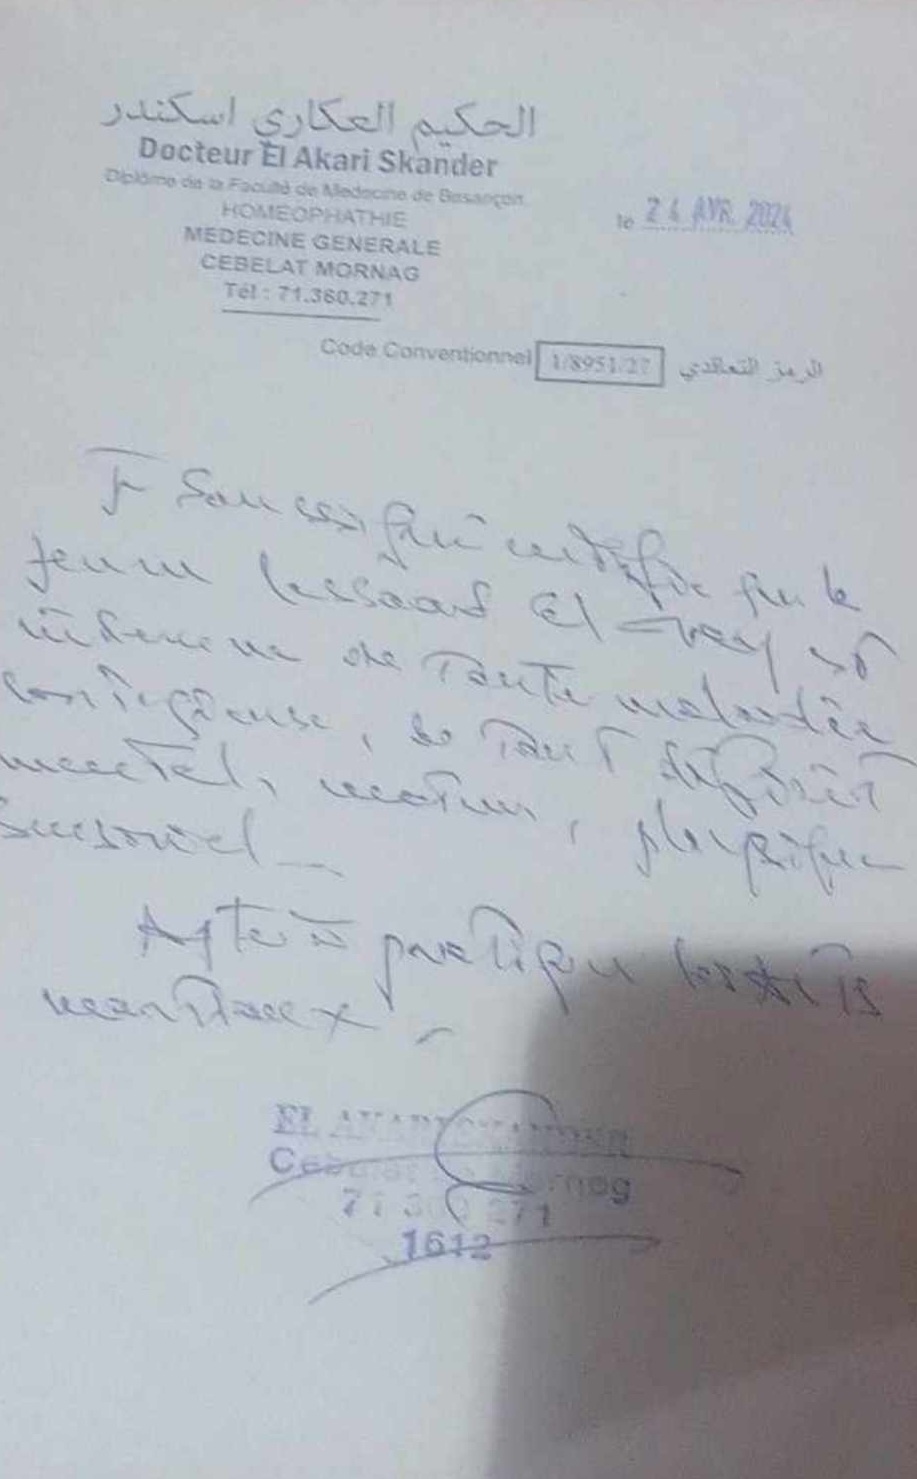 الحكيم العكاري اسكندر
Docteur El Akari Skander
Diplômé de la Faculté de Medecine de Besançon
HOMEOPHATHIE
MEDECINE GENERALE
CEBELAT MORNAG
Tél : 71.360.271
le 24 AVR. 2024
Code Conventionnel 1/8951/27 الرمز التعاقدي
Je soussigné certifie que le
jeune Lessaad El est
indemne de toute maladie
contagieuse, de tout déficit
mental, moteur, physique
sensoriel
Apte à pratiquer les arts
martiaux
EL AKARI SKANDER
Cebelat Mornag
71 360 271
1612